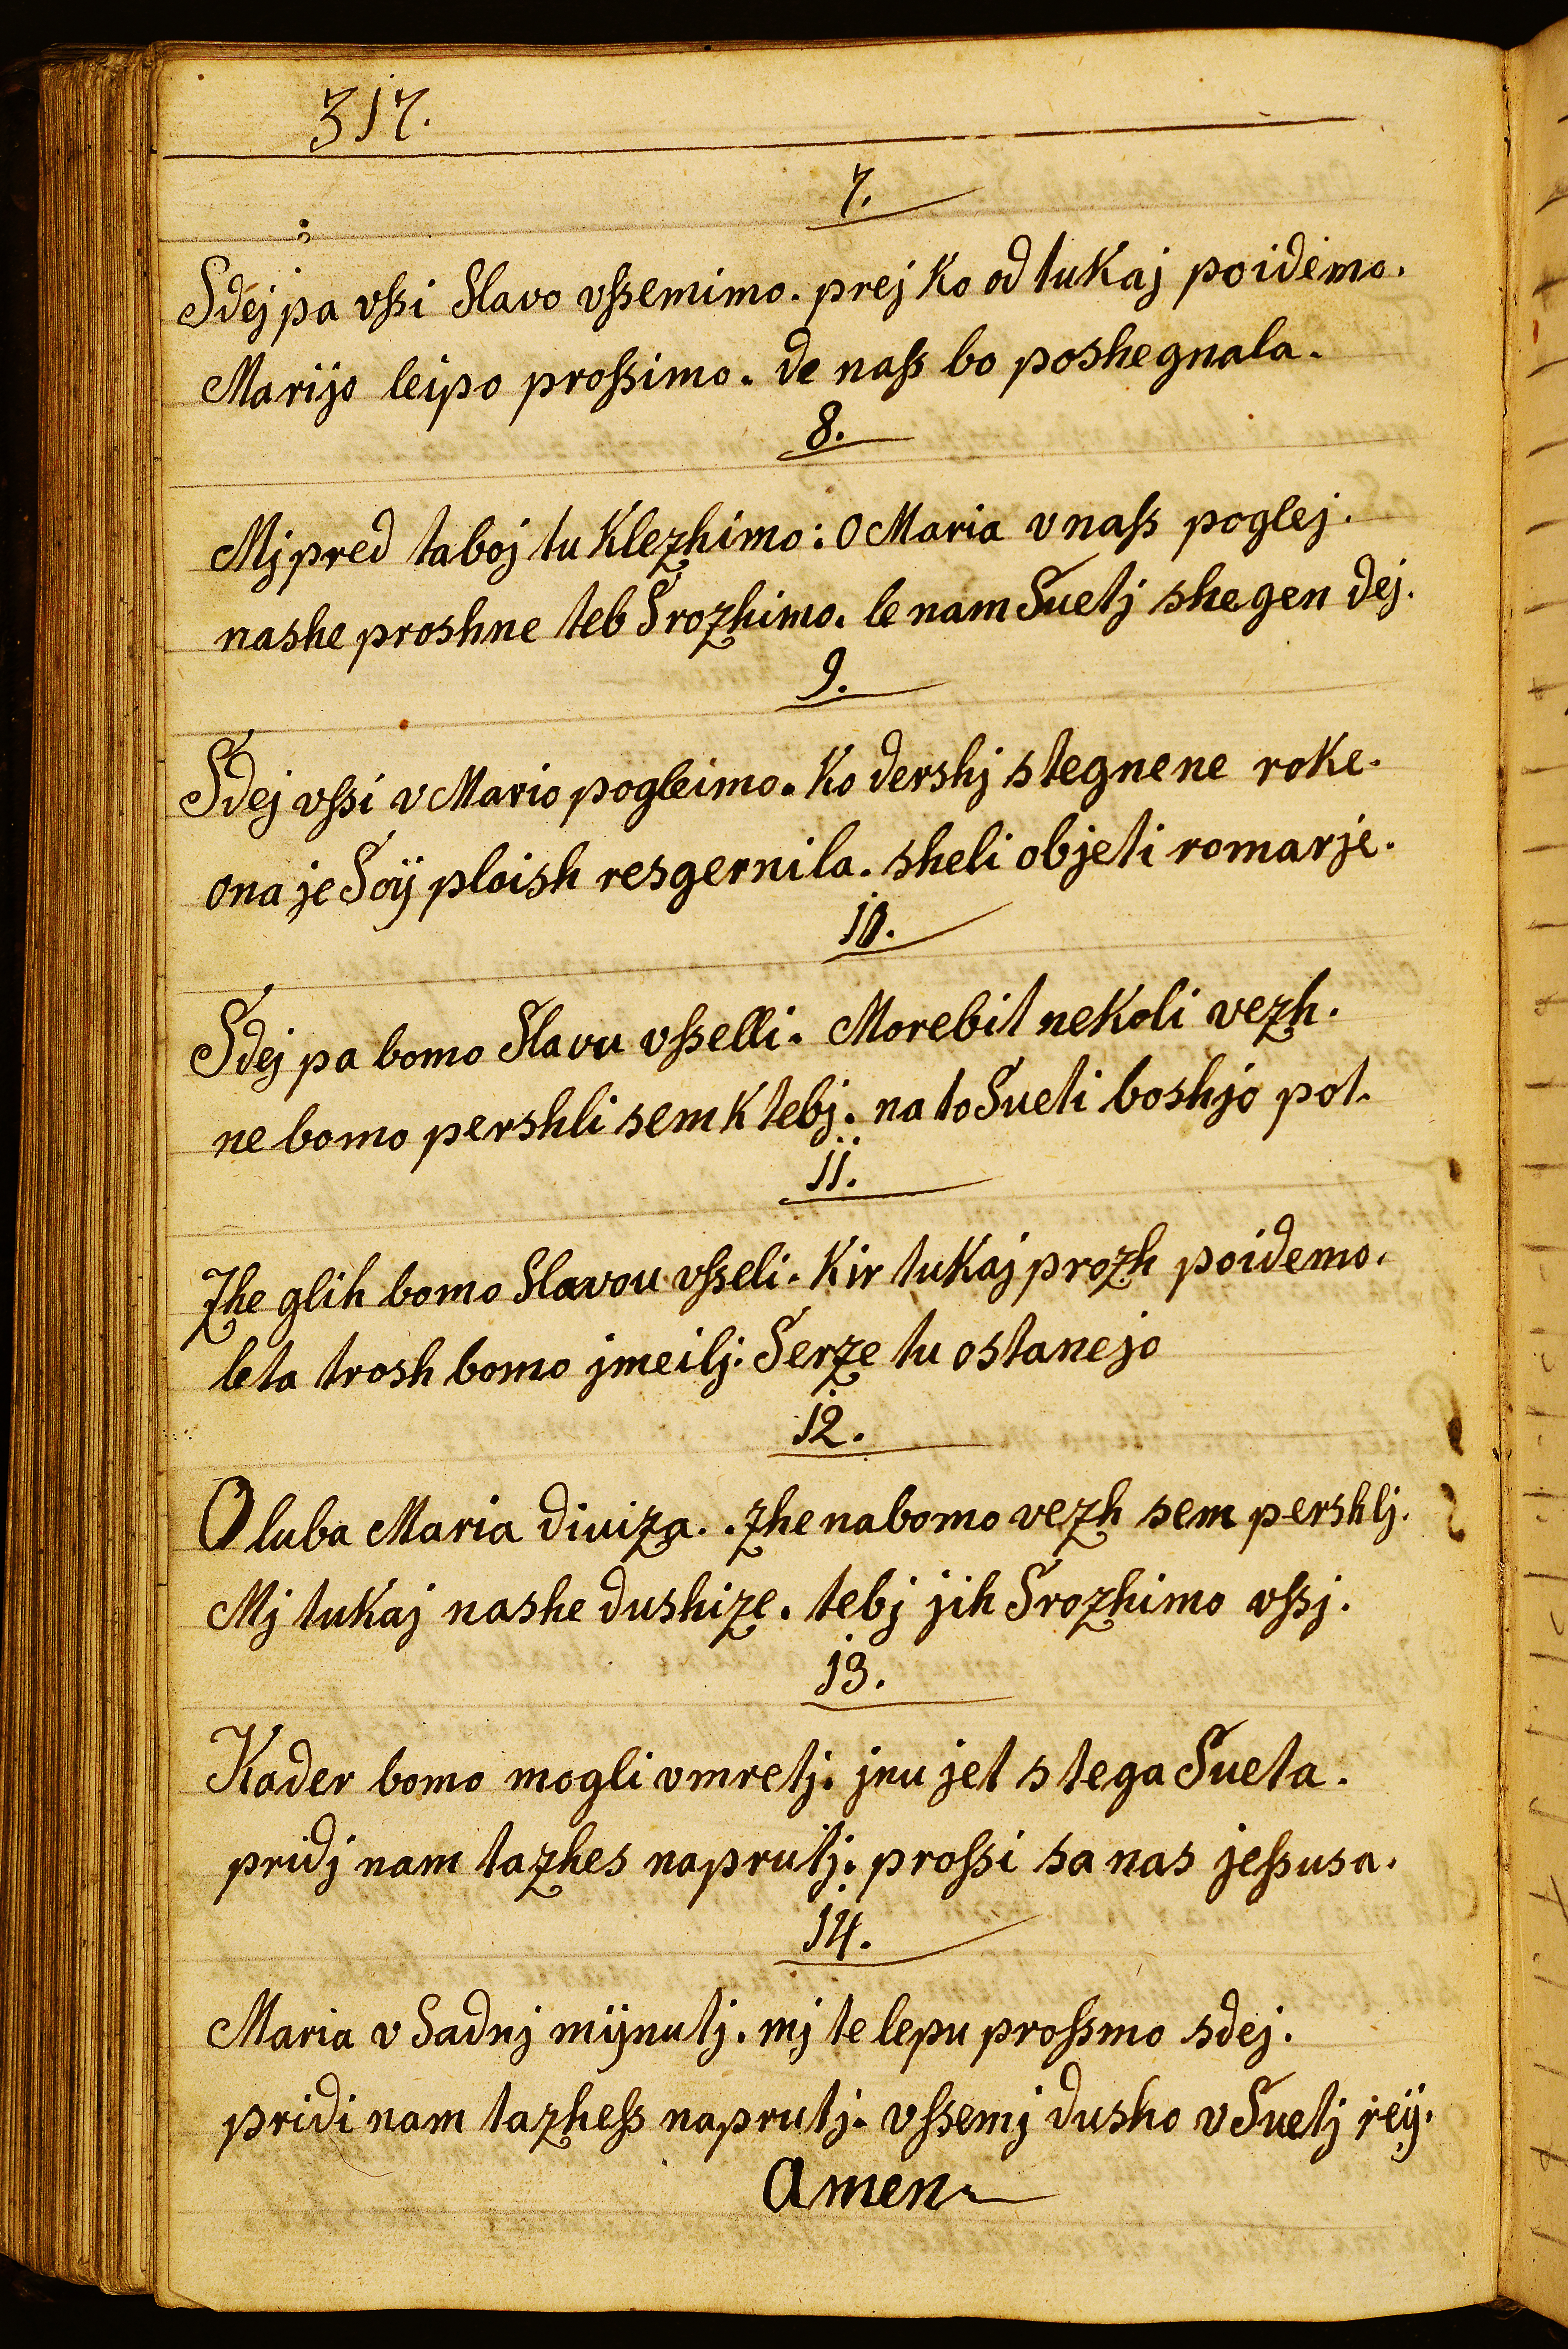 317.
7.
Sdej pa vſsi Slavo vſsemimo. prej Ko od tuKaj poidemo.
Marijo leipo proſsimo. de naſs bo poshegnala.
8.
Mj pred taboj tu Klezhimo: O Maria v naſs poglej.
nashe proshne teb Srozhimo. le nam Suetj shegen dej.
9.
Sdej vſsi v Mario pogleimo. Ko dershj stegnene roke.
ona je Soÿ ploish resgernila. sheli objeti romarje.
10.
Sdej pa bomo Slavu vſselli. Morebit neKoli vezh.
ne bomo pershli sem K tebj. na to Sueti boshjo pot.
11.
Zhe glih bomo Slavou vſseli. Kir tuKaj prozh poidemo.
le ta trosh bomo jmeilj. Serze tu ostanejo
12.
O luba Maria diuiza. . zhe na bomo vezh sem pershlj.
Mj tuKaj nashe dushize. tebj jih Srozhimo vſsj.
13.
Kader bomo mogli vmretj. jnu jet s tega Sueta.
pridj nam ta zhes naprutj. proſsi sa nas jeſsusa.
14.
Maria v Sadnj mÿnutj. mj te lepu proſsmo sdej.
pridi nam ta zheſs naprutj. vſsemj dusho v Suetj reÿ.
Amen